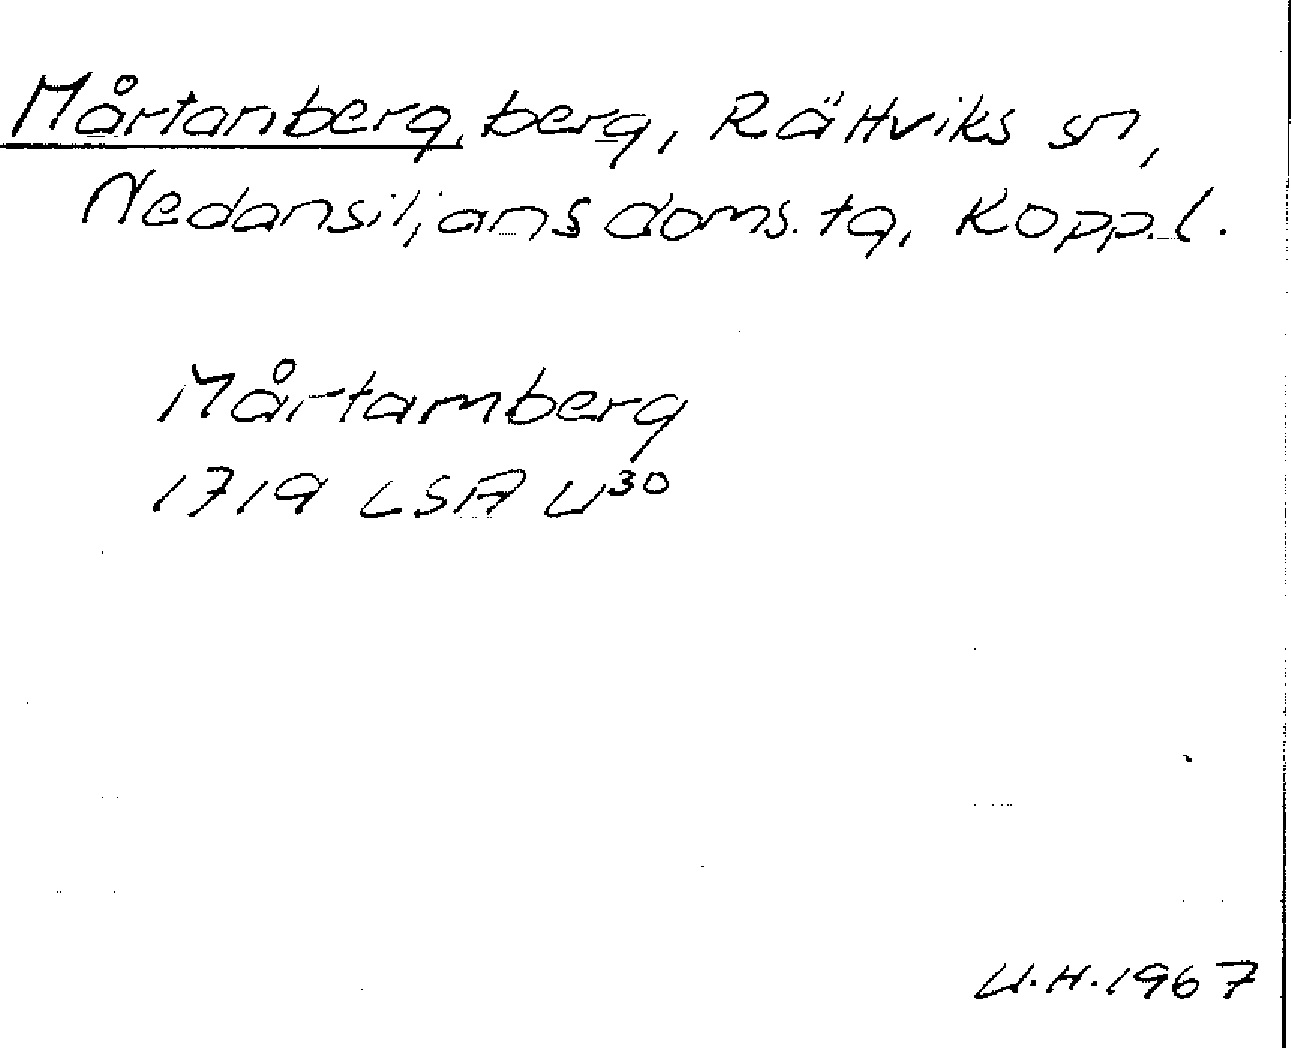 Mårtanberg, berg, Rättviks sn,
Nedansiljans doms. tg, Kopp.l.
Mårtamberg
1719 LSA U³⁰
U.H.1967